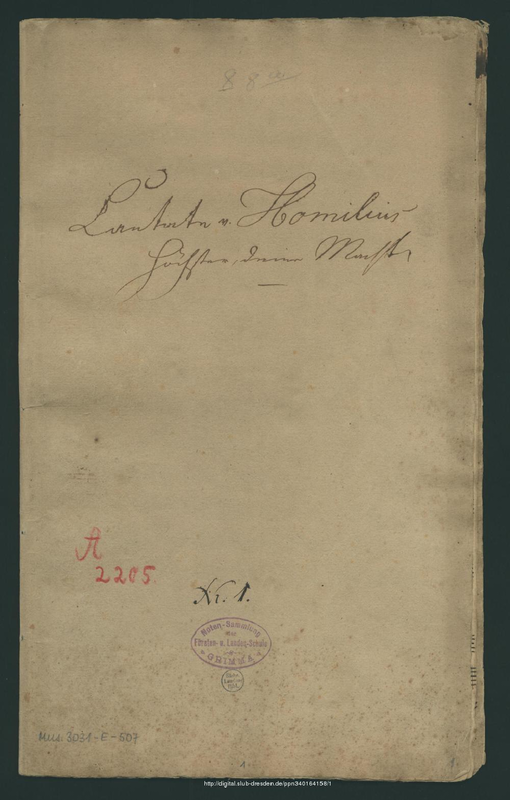 Cantate v. Homilius
Höchster, deine Macht
A
2205
Nr. 1.
Noten-Sammlung
der
Fürsten- u. Landes-Schule
GRIMMA
Mus. 3031-E-507
1.
http://digital.slub-dresden.de/ppn340164158/1